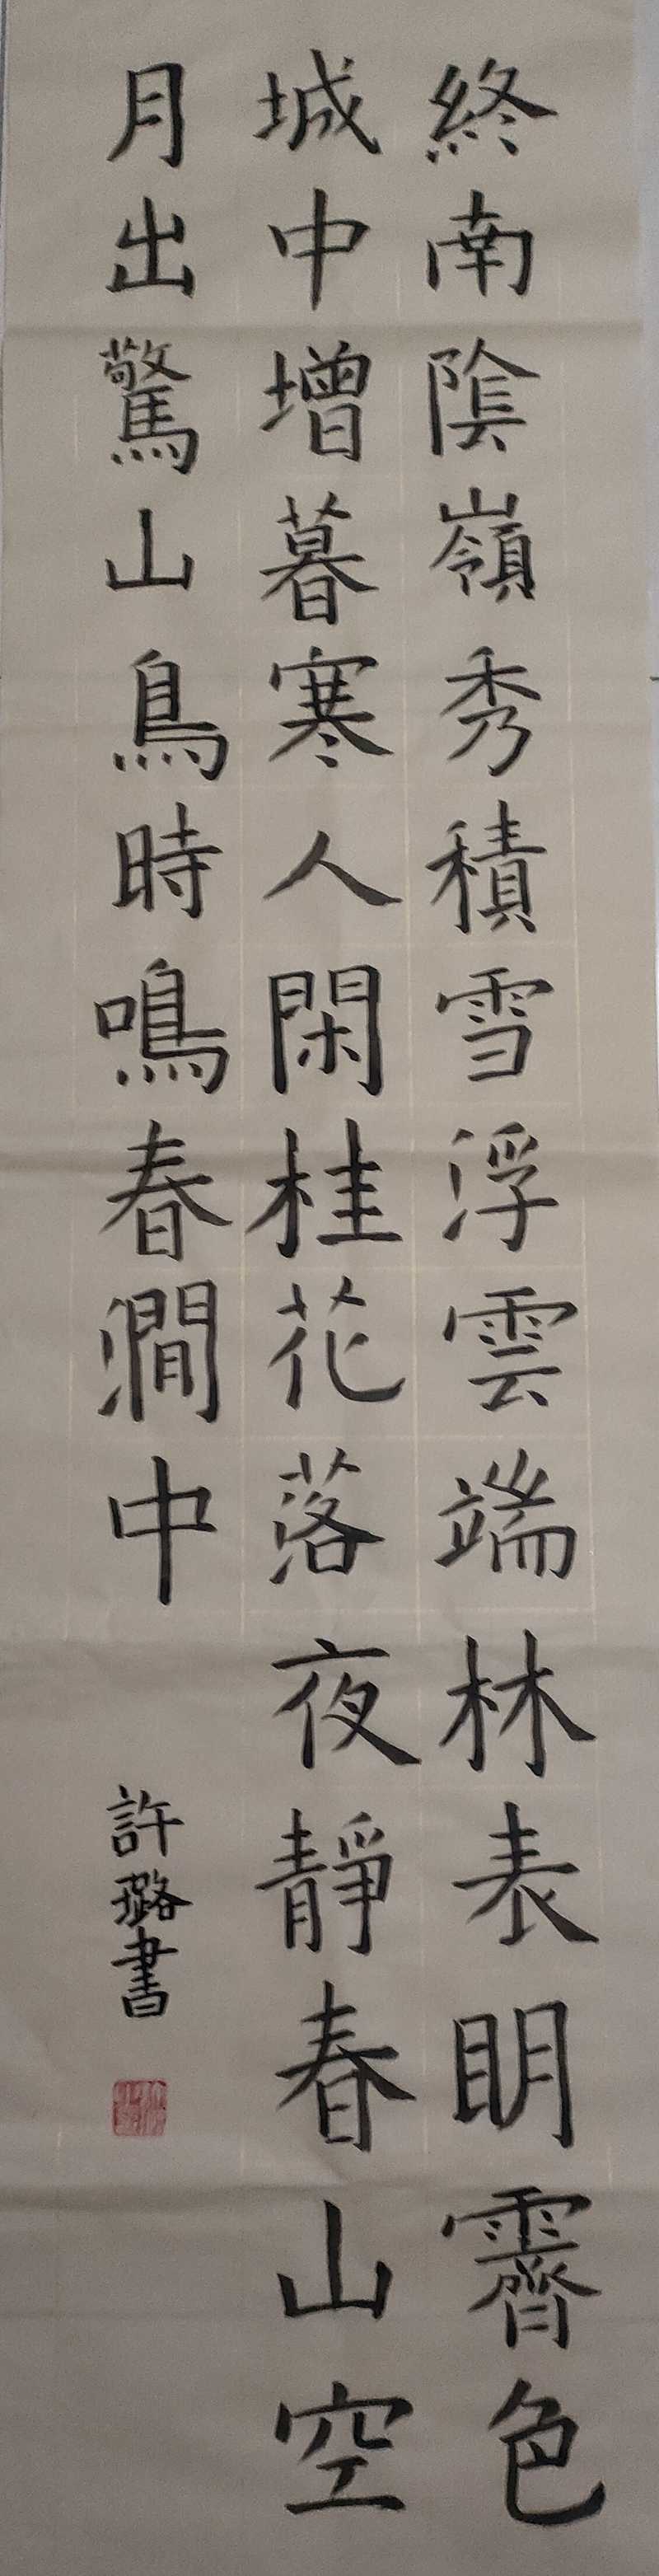 終南陰嶺秀積雪浮雲端林表明霽色
城中增暮寒人閑桂花落夜靜春山空
月出驚山鳥時鳴春澗中
許璐書